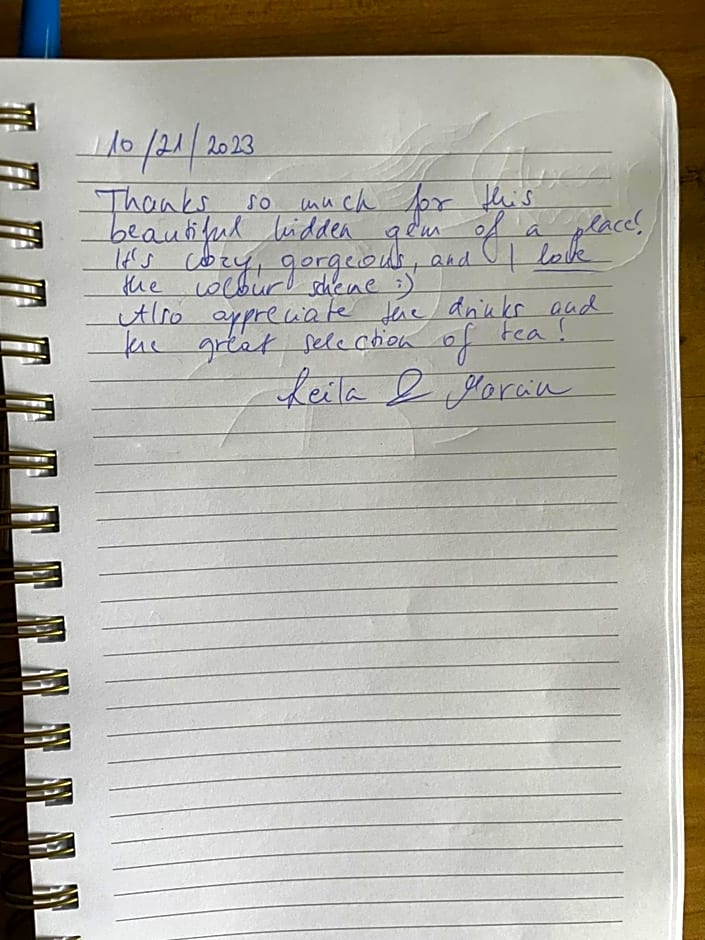 10/21/2023
Thanks so much for this
beautiful hidden gem of a place!
It's cozy, gorgeous, and I love
the colour scheme :)
Also appreciate the drinks and
the great selection of tea!
Leila & Marcin